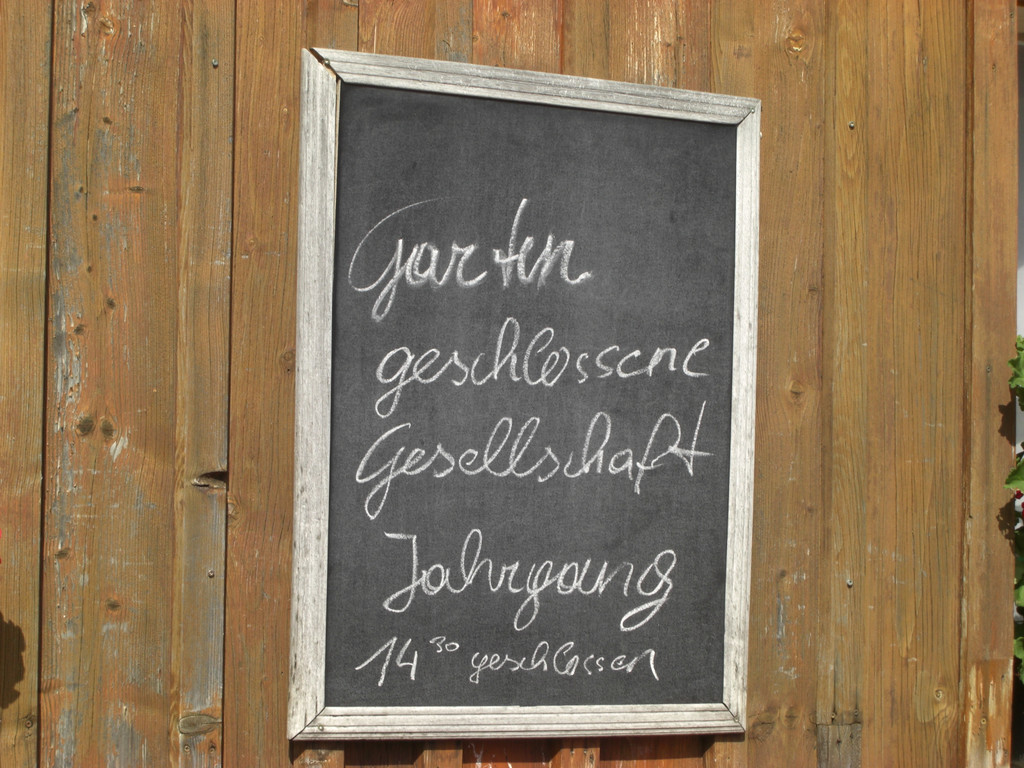 Garten
geschlossene
Gesellschaft
Jahrgang
14 30 geschlossen